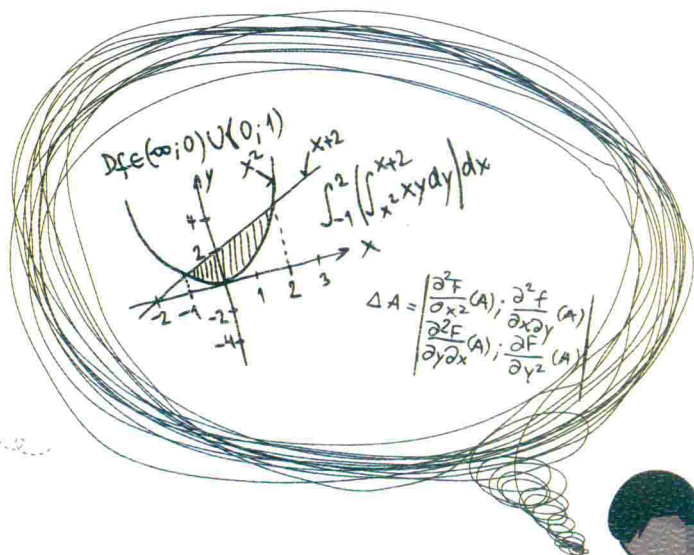 Df∈(∞;0)∪(0;1)
x²
x+2
y
4
2
-2
-4
-2 -1 1 2 3
x
∫₋₁² (∫ₓ²ˣ⁺² xy dy) dx
ΔA = | ∂²F/∂x² (A); ∂²f/∂x∂y (A) |
| ∂²F/∂y∂x (A); ∂F/∂y² (A) |